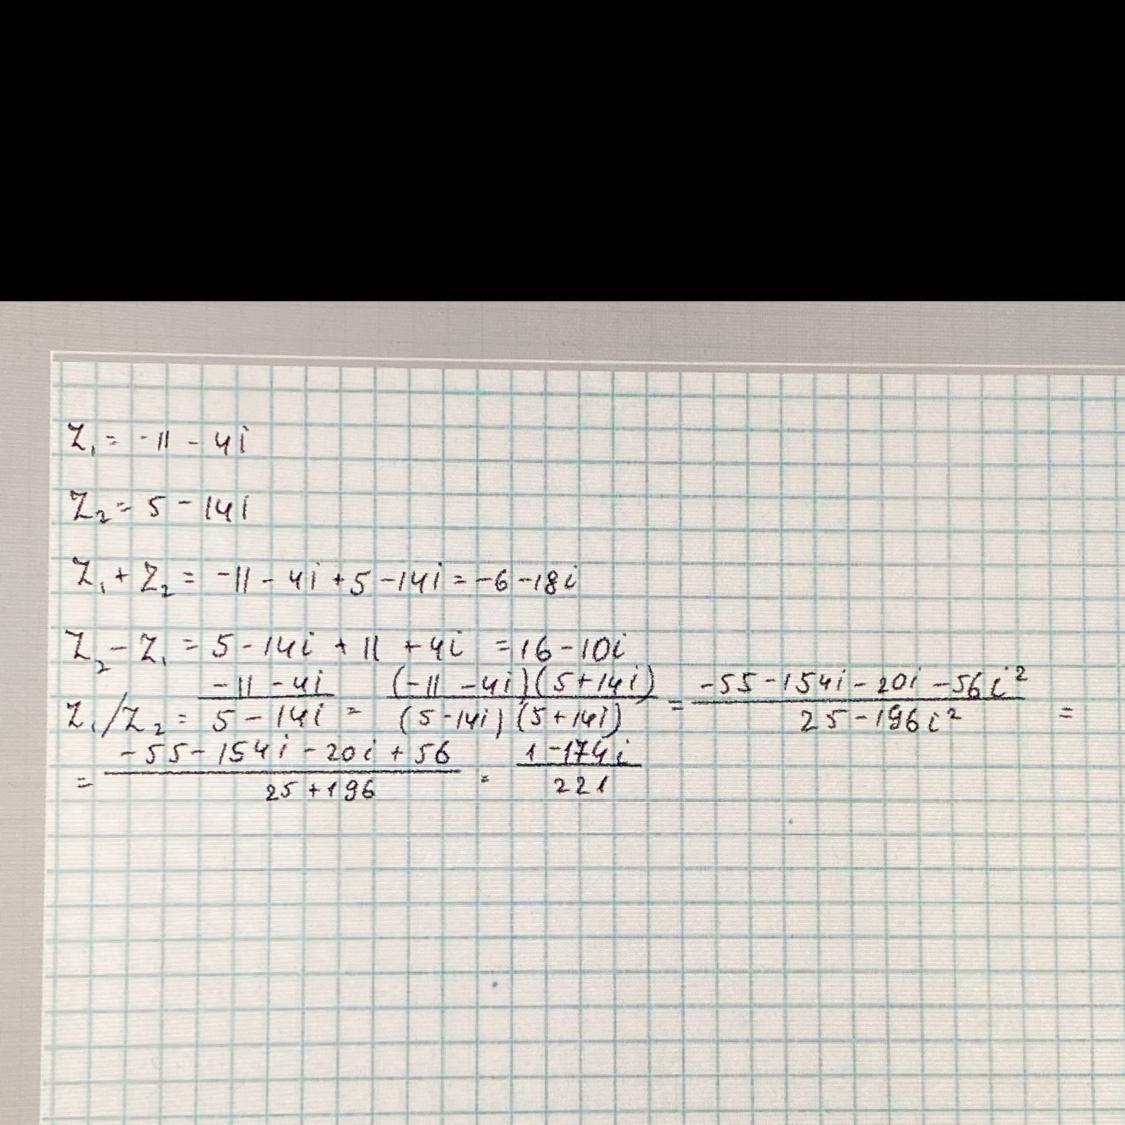 Z₁ = -11 - 4i
Z₂ = 5 - 14i
Z₁ + Z₂ = -11 - 4i + 5 - 14i = -6 - 18i
Z₂ - Z₁ = 5 - 14i + 11 + 4i = 16 - 10i
Z₁/Z₂ = (-11 - 4i)/(5 - 14i) = ((-11 - 4i)(5 + 14i))/((5 - 14i)(5 + 14i)) = (-55 - 154i - 20i - 56i²)/(25 - 196i²) =
= (-55 - 154i - 20i + 56)/(25 + 196) = (1 - 174i)/221